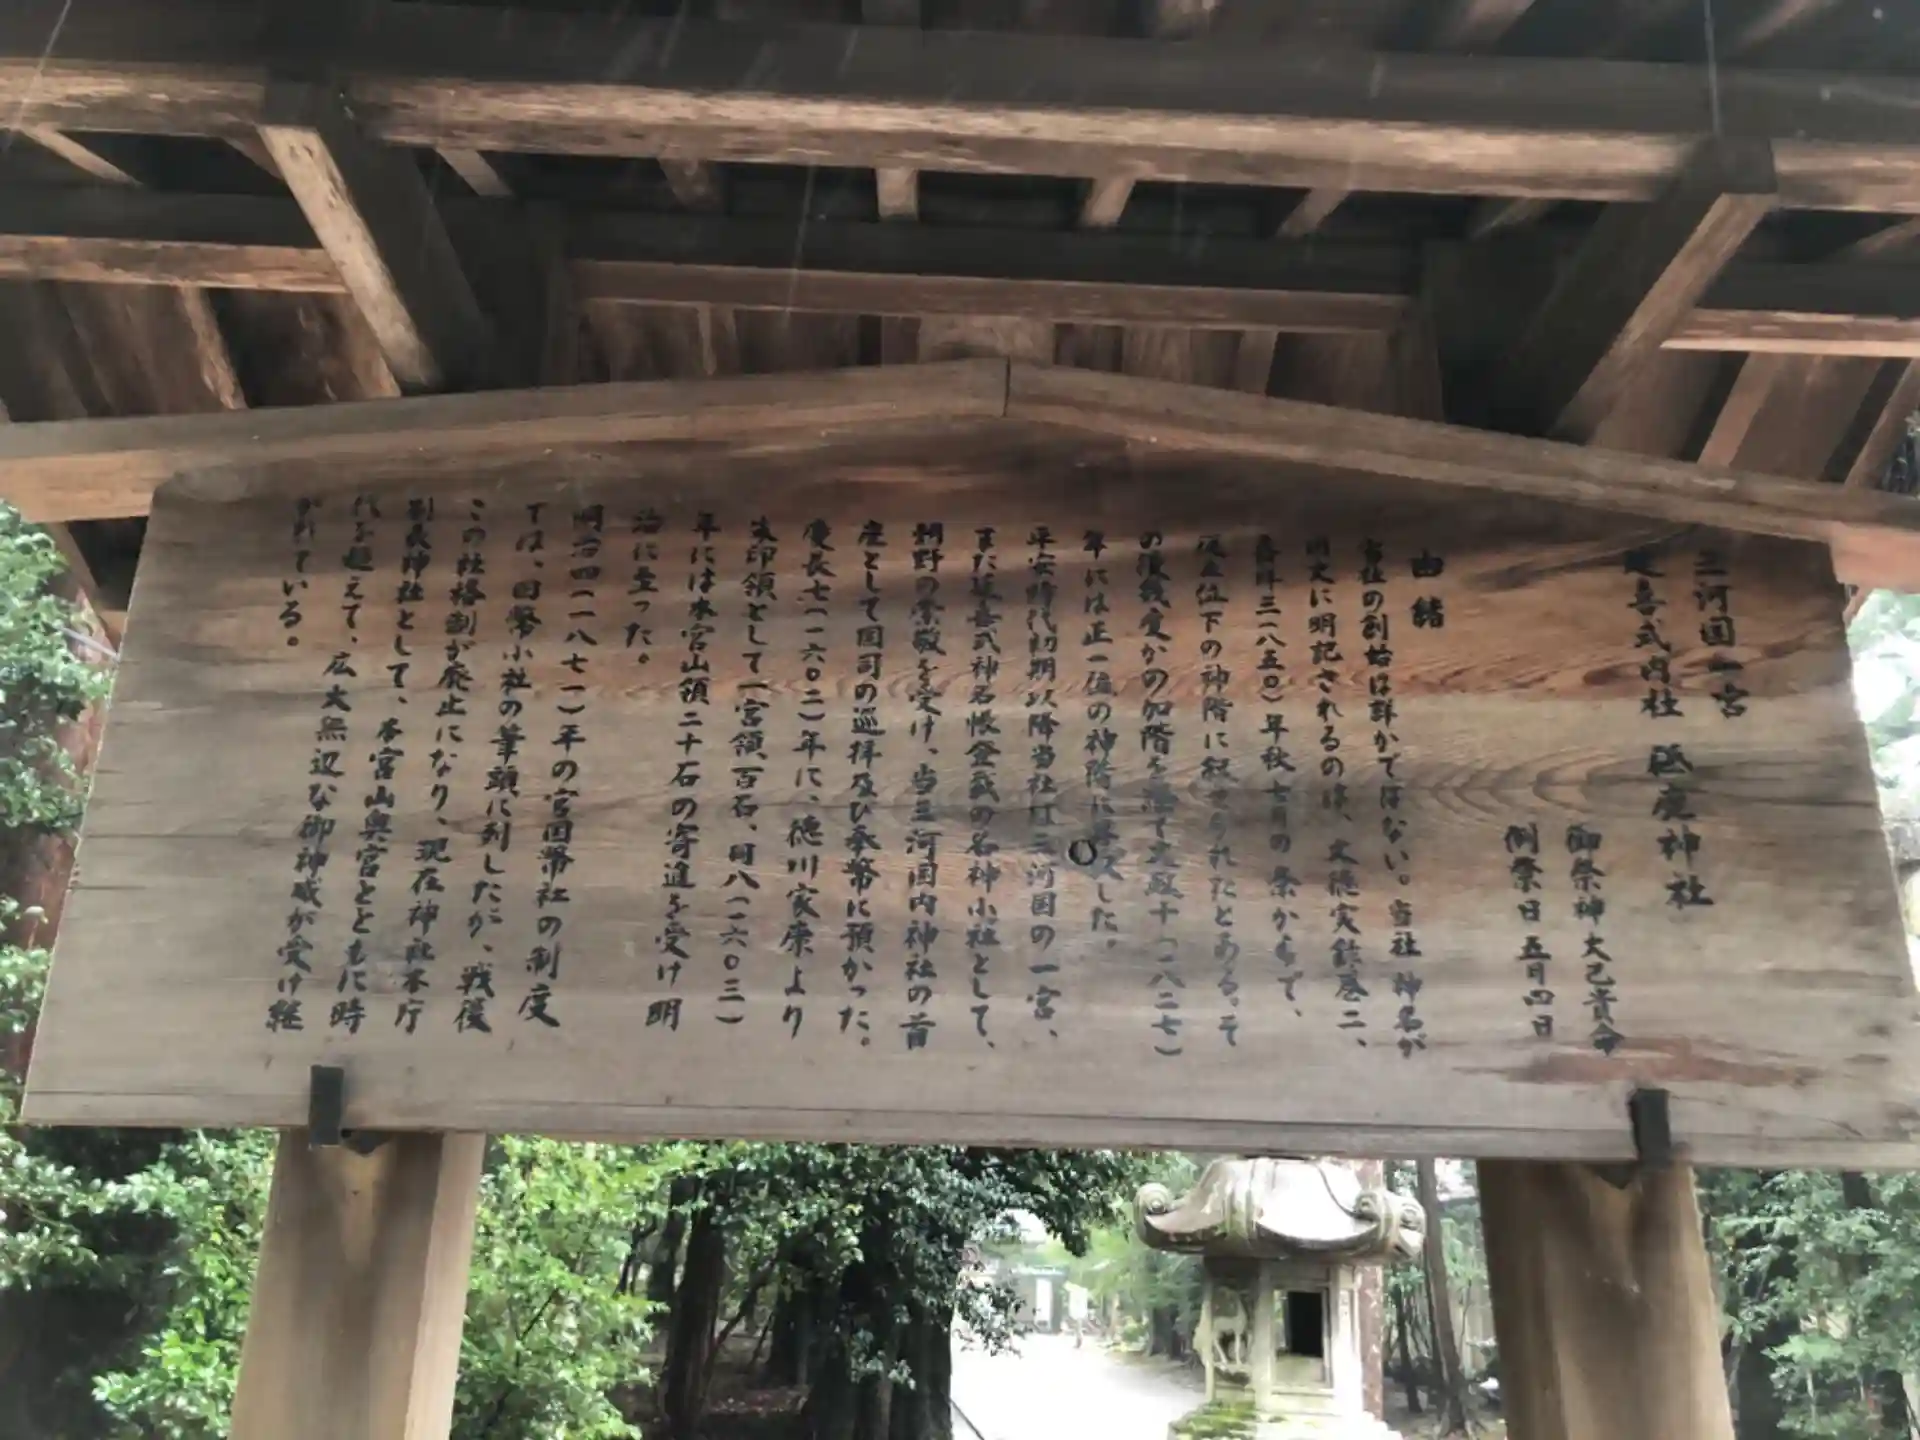 三河国一宮
延喜式内社 砥鹿神社
御祭神 大己貴命
例祭日 五月四日
由緒
当社の創始は詳かではない。当社 神名が
明文に明記されるのは、文徳実録巻二、
嘉祥三(八五〇)年秋七月の条からで、
従五位下の神階に叙せられたとある。そ
の後幾度かの加階を経て文政十(一八二七)
年には正一位の神階に昇叙した。
平安時代初期以降当社は三河国の一宮、
また延喜式神名帳登載の名神小社として、
朝野の崇敬を受け、当三河国内神社の首
座として国司の巡拝及び奉幣に預かった。
慶長七(一六〇二)年に、徳川家康より
朱印領として一宮領、百石、同八(一六〇三)
年には本宮山領二十石の寄進を受け明
治に至った。
明治四(一八七一)年の官国幣社の制度
では、国幣小社の筆頭に列したが、戦後
この社格制が廃止になり、現在神社本庁
別表神社として、本宮山奥宮とともに時
代を超えて、広大無辺な御神威が受け継
がれている。